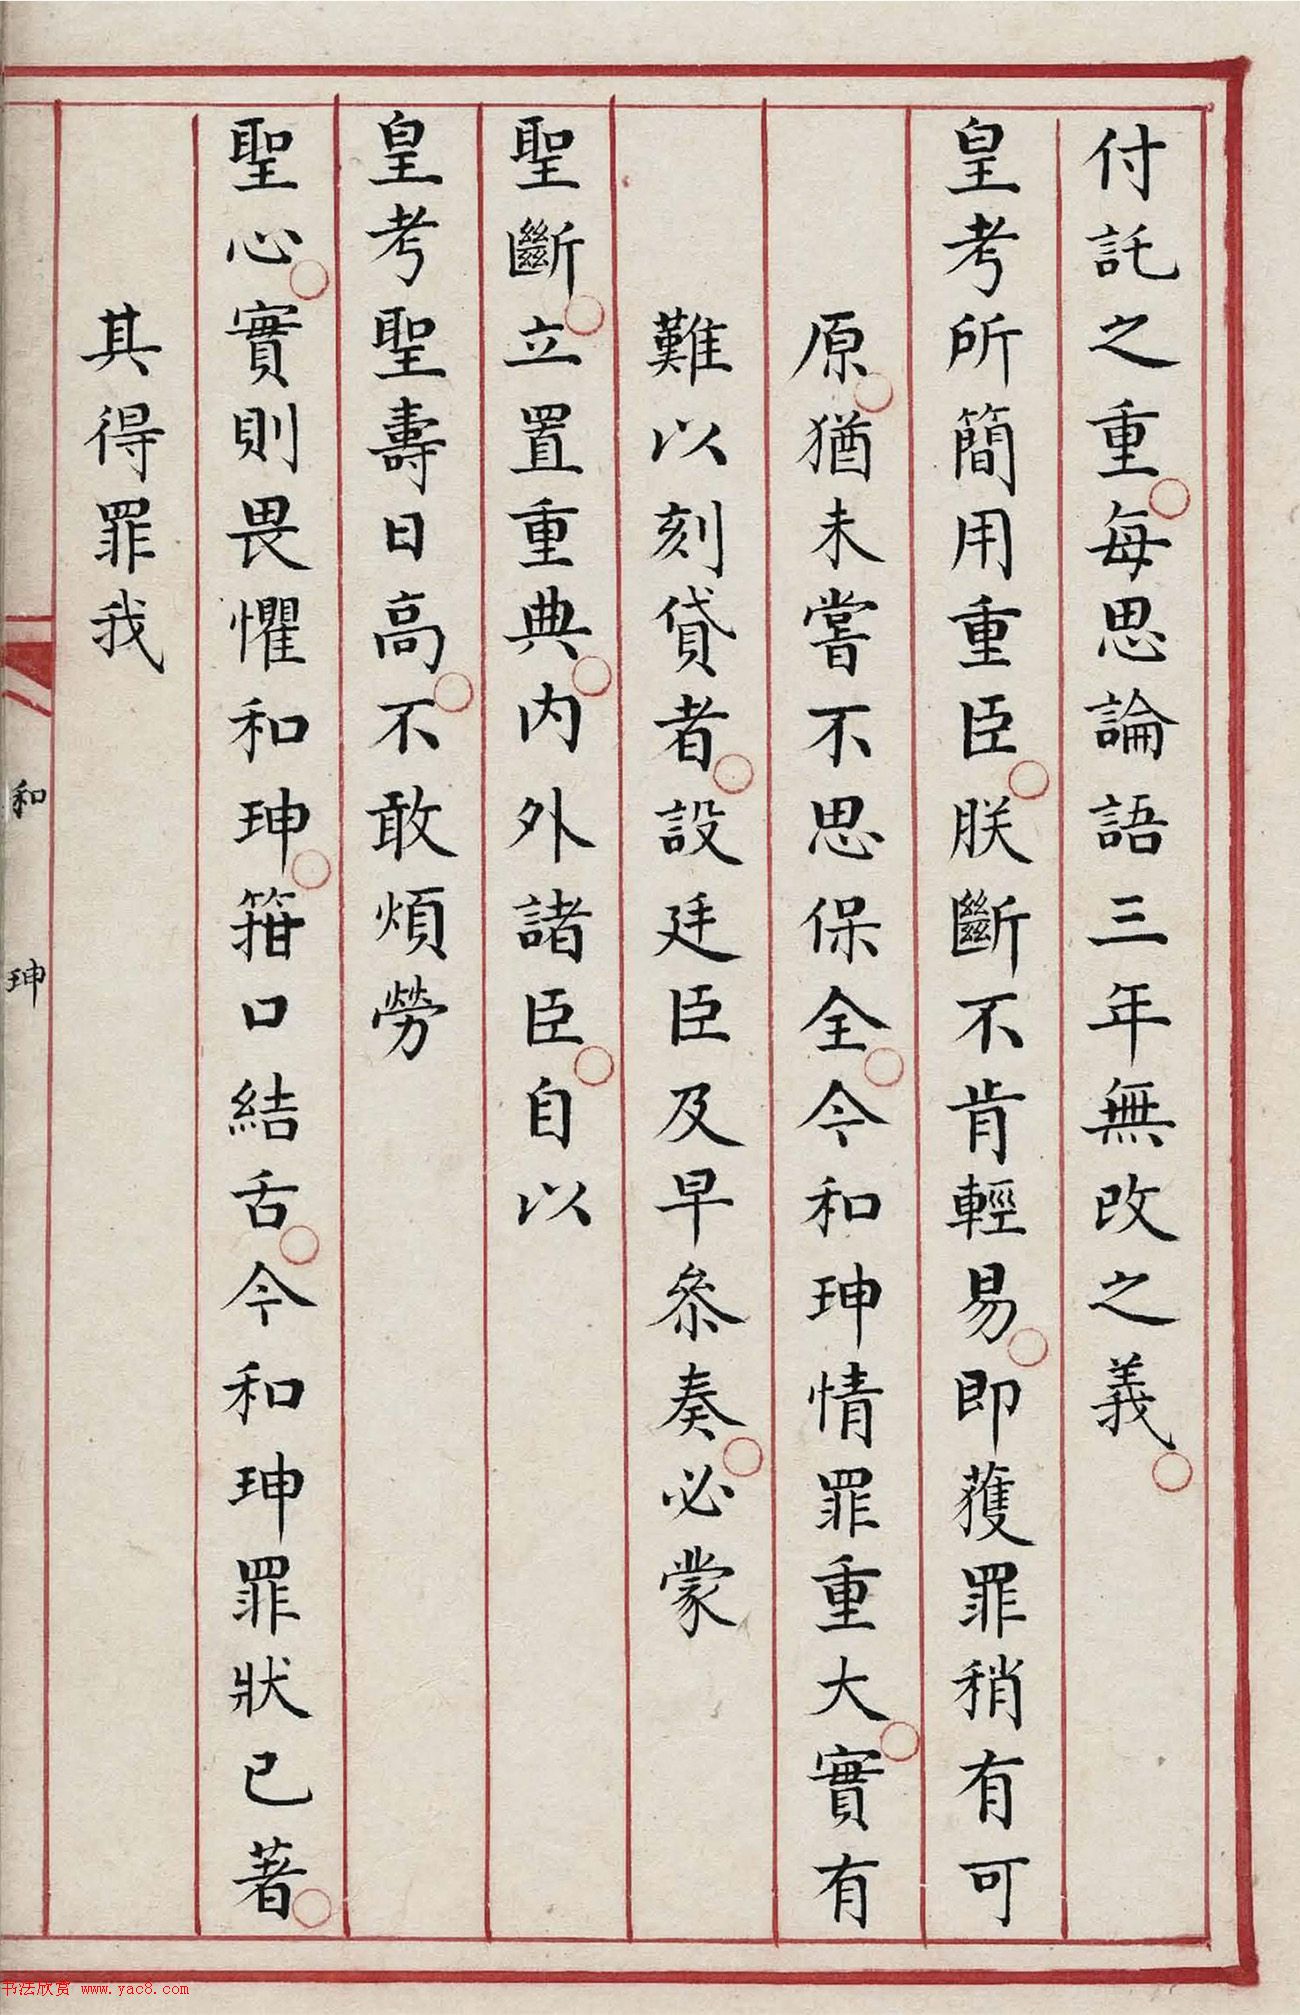 付託之重○每思論語三年無改之義○
皇考所簡用重臣○朕斷不肯輕易○即獲罪稍有可
原○猶未嘗不思保全○今和珅情罪重大○實有
難以刻貸者○設廷臣及早叅奏○必蒙
聖斷○立置重典○内外諸臣○自以
皇考聖壽日高○不敢煩勞
聖心○實則畏懼和珅○箝口結舌○今和珅罪狀已著○
其得罪我
和珅
书法欣赏 www.yac8.com